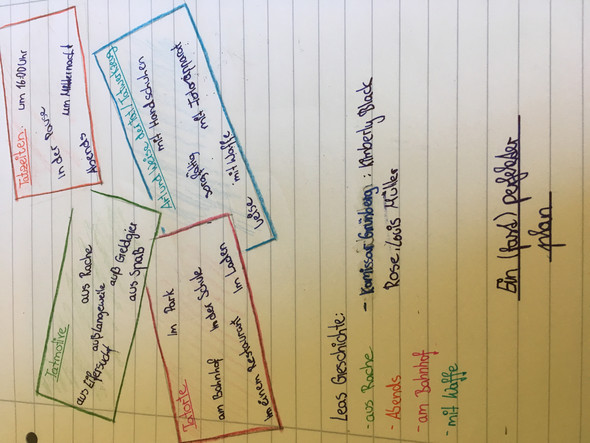 Tatmotive
aus Rache
auß Langeweile
aus Eifersucht
auß Geldgier
aus Spaß
Tatzeiten:
um 16:00 Uhr
in der Pause
um Mitternacht
Abends
Tatorte
Im Park
am Bahnhof
In der Schule
In einem Restaurant
Im Laden
Art und Weise der Tat/Tatwerkzeug
mit Handschuhen
sorgfältig
mit
mit Waffe
leise
Leas Geschichte:
- aus Rache
- Komissar Grünberg: Kimberly Black
- Abends
Rose: Louis Müller
- am Bahnhof
- mit Waffe
Ein (fast) perfekter
plan